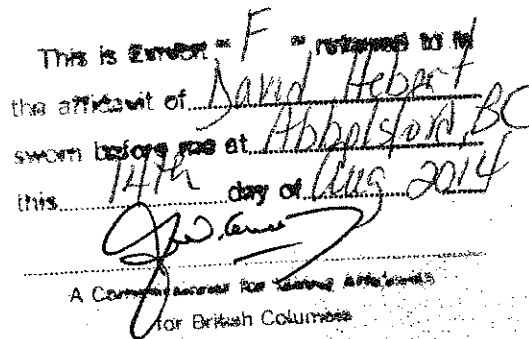 This is Exhibit " F " referred to in
the affidavit of David Hebert
sworn before me at Abbotsford, BC
this 14th day of Aug 2014
A Commissioner for taking Affidavits
for British Columbia